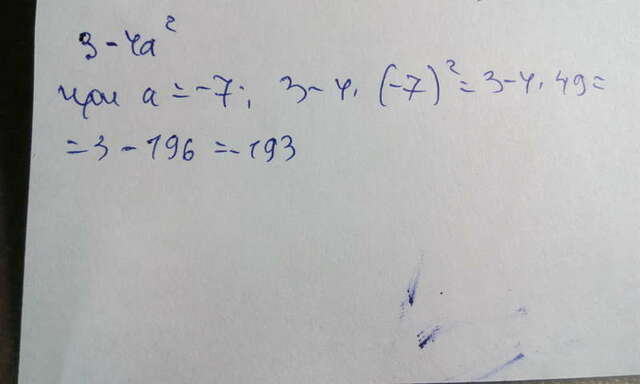 3 - 4a²
при a = -7; 3 - 4 · (-7)² = 3 - 4 · 49 =
= 3 - 196 = -193